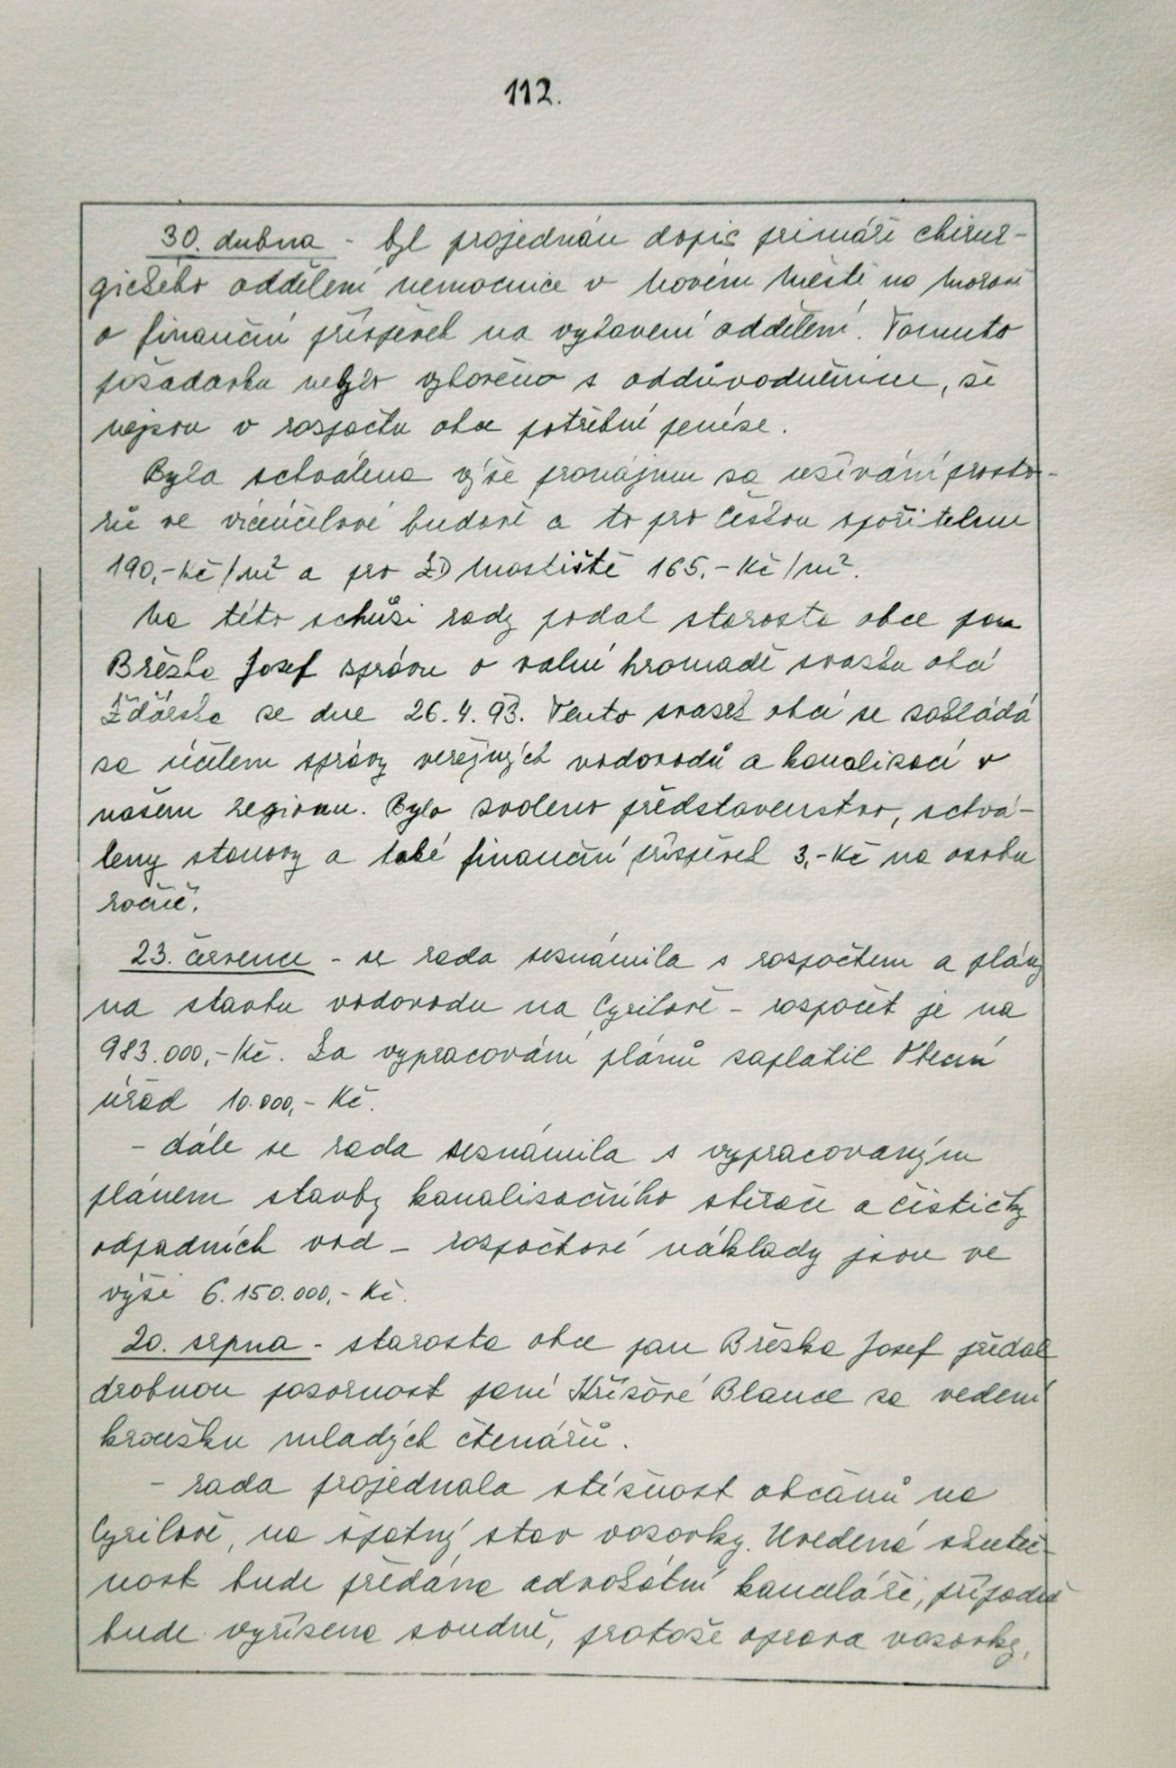 112.
30. dubna - byl projednán dopis primáře chirur-
gického oddělení nemocnice v Novém Městě na Moravě
o finanční příspěvek na vybavení oddělení. Tomuto
požadavku nebylo vyhověno s odůvodněním, že
nejsou v rozpočtu obce potřebné peníze.
Byla schválena výše pronájmu za užívání prosto-
rů ve víceúčelové budově a to pro Českou spořitelnu
190,- Kč/m² a pro ZD Mostiště 165,- Kč/m².
Na této schůzi rady podal starosta obce pan
Břězka Josef zprávu o valné hromadě svazku obcí
Žďárska ze dne 26.4.93. Tento svazek obcí se zakládá
za účelem správy veřejných vodovodů a kanalizací v
našem regionu. Bylo zvoleno představenstvo, schvá-
leny stanovy a také finanční příspěvek 3,- Kč na osobu
ročně.
23. července - se rada seznámila s rozpočtem a plány
na stavbu vodovodu na Cyrilově - rozpočet je na
983.000,- Kč. Za vypracování plánů zaplatil Obecní
úřad 10.000,- Kč.
- dále se rada seznámila s vypracovaným
plánem stavby kanalizačního sběrače a čističky
odpadních vod - rozpočtové náklady jsou ve
výši 6.150.000,- Kč.
20. srpna - starosta obce pan Břězka Josef předal
drobnou pozornost paní Křížové Blance za vedení
kroužku mladých čtenářů.
- rada projednala stížnost občanů na
Cyrilově, na špatný stav vozovky. Uvedená skuteč-
nost bude předána advokátní kanceláři, případně
bude vyřízena soudně, protože oprava vozovky,